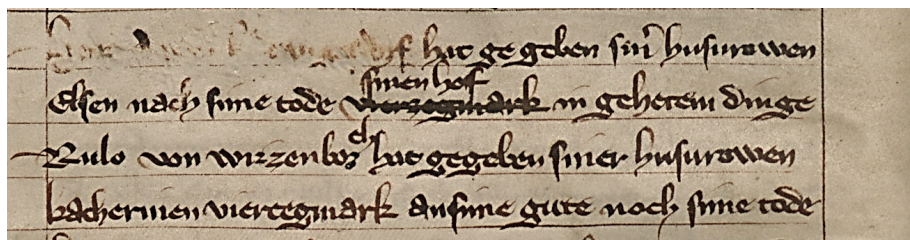 hat gegeben sin̄ husurowen
Elsen nach sime tode vierzegmark sinen hof in gehetem dinge
Rulo von wirzenborch hat gegeben siner husurowen
kacherinen viertegmark an sime gute noch sime tode